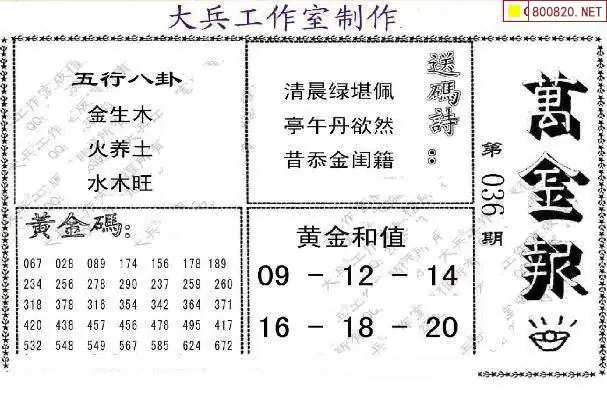 大兵工作室制作
800820.NET
五行八卦
金生木
火养土
水木旺
送碼詩：
清晨绿堪佩
亭午丹欲然
昔忝金闺籍
萬金報
第036期
黃金碼：
067 028 089 174 156 178 189
234 256 278 290 237 259 260
318 378 316 354 342 364 371
420 438 457 456 478 495 417
532 548 549 567 585 624 672
黄金和值
09 - 12 - 14
16 - 18 - 20